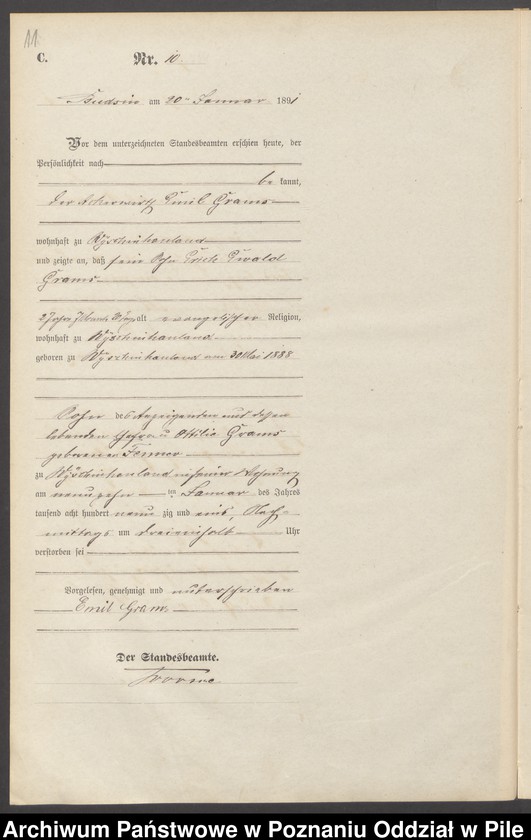 11.
C. Nr. 10.
am 20 Januar 1891
Vor dem unterzeichneten Standesbeamten erschien heute, der
Persönlichkeit nach
be kannt,
der Ackerwirth Emil Grams
wohnhaft zu
und zeigte an, daß sein Sohn Erich Ewald
Grams
alt evangelischer Religion,
wohnhaft zu
geboren zu am 30 Mai 1888
Sohn des Anzeigenden und dessen
lebenden Ehefrau Ottilie Grams
geborenen
zu in seiner Wohnung
am neunzehn ten Januar des Jahres
tausend acht hundert neun zig und eins, Nach-
mittags um dreieinhalb Uhr
verstorben sei
Vorgelesen, genehmigt und unterschrieben
Emil Gram
Der Standesbeamte.
Archiwum Państwowe w Poznaniu Oddział w Pile